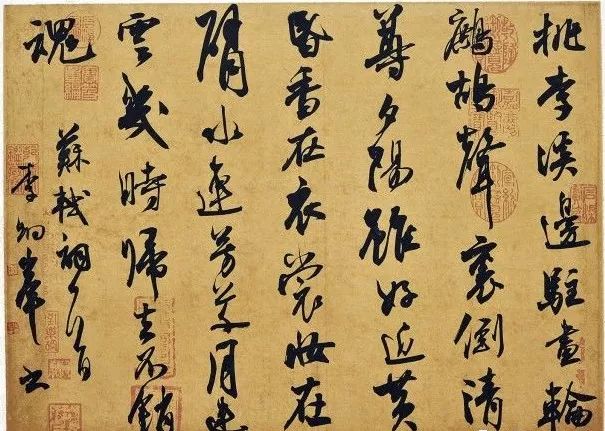 桃李溪邊駐畫輪
鷓鴣聲裏倒清
尊夕陽雖好近黃
昏香在衣裳妝在
臂水連芳草月連
雲幾時歸去不銷
魂
蘇軾詞一首
李炯峯书